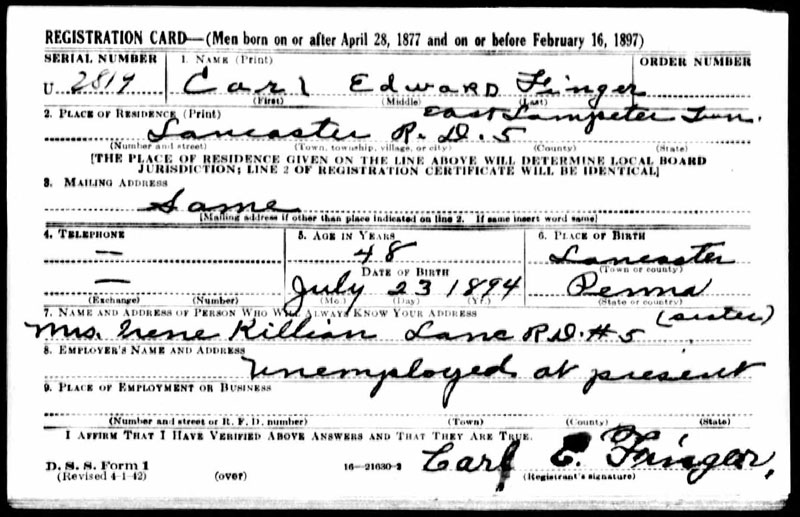 REGISTRATION CARD—(Men born on or after April 28, 1877 and on or before February 16, 1897)
SERIAL NUMBER 1. NAME (Print) ORDER NUMBER
U 2819 Carl Edward Finger
(First) (Middle) (Last)
2. PLACE OF RESIDENCE (Print) East Lampeter Twn.
Lancaster R.D. 5
(Number and street) (Town, township, village, or city) (County) (State)
[THE PLACE OF RESIDENCE GIVEN ON THE LINE ABOVE WILL DETERMINE LOCAL BOARD
JURISDICTION; LINE 2 OF REGISTRATION CERTIFICATE WILL BE IDENTICAL]
3. MAILING ADDRESS
Same
[Mailing address if other than place indicated on line 2. If same insert word same]
4. TELEPHONE 5. AGE IN YEARS 6. PLACE OF BIRTH
— 48 Lancaster
DATE OF BIRTH (Town or county)
— July 23 1894 Penna
(Exchange) (Number) (Mo.) (Day) (Yr.) (State or country)
7. NAME AND ADDRESS OF PERSON WHO WILL ALWAYS KNOW YOUR ADDRESS (sister)
Mrs. Irene Killian Lanc R.D. #5
8. EMPLOYER'S NAME AND ADDRESS
Unemployed at present
9. PLACE OF EMPLOYMENT OR BUSINESS
(Number and street or R. F. D. number) (Town) (County) (State)
I AFFIRM THAT I HAVE VERIFIED ABOVE ANSWERS AND THAT THEY ARE TRUE.
D. S. S. Form 1
(Revised 4-1-42) (over) 16—21630-2 Carl E. Finger,
(Registrant's signature)